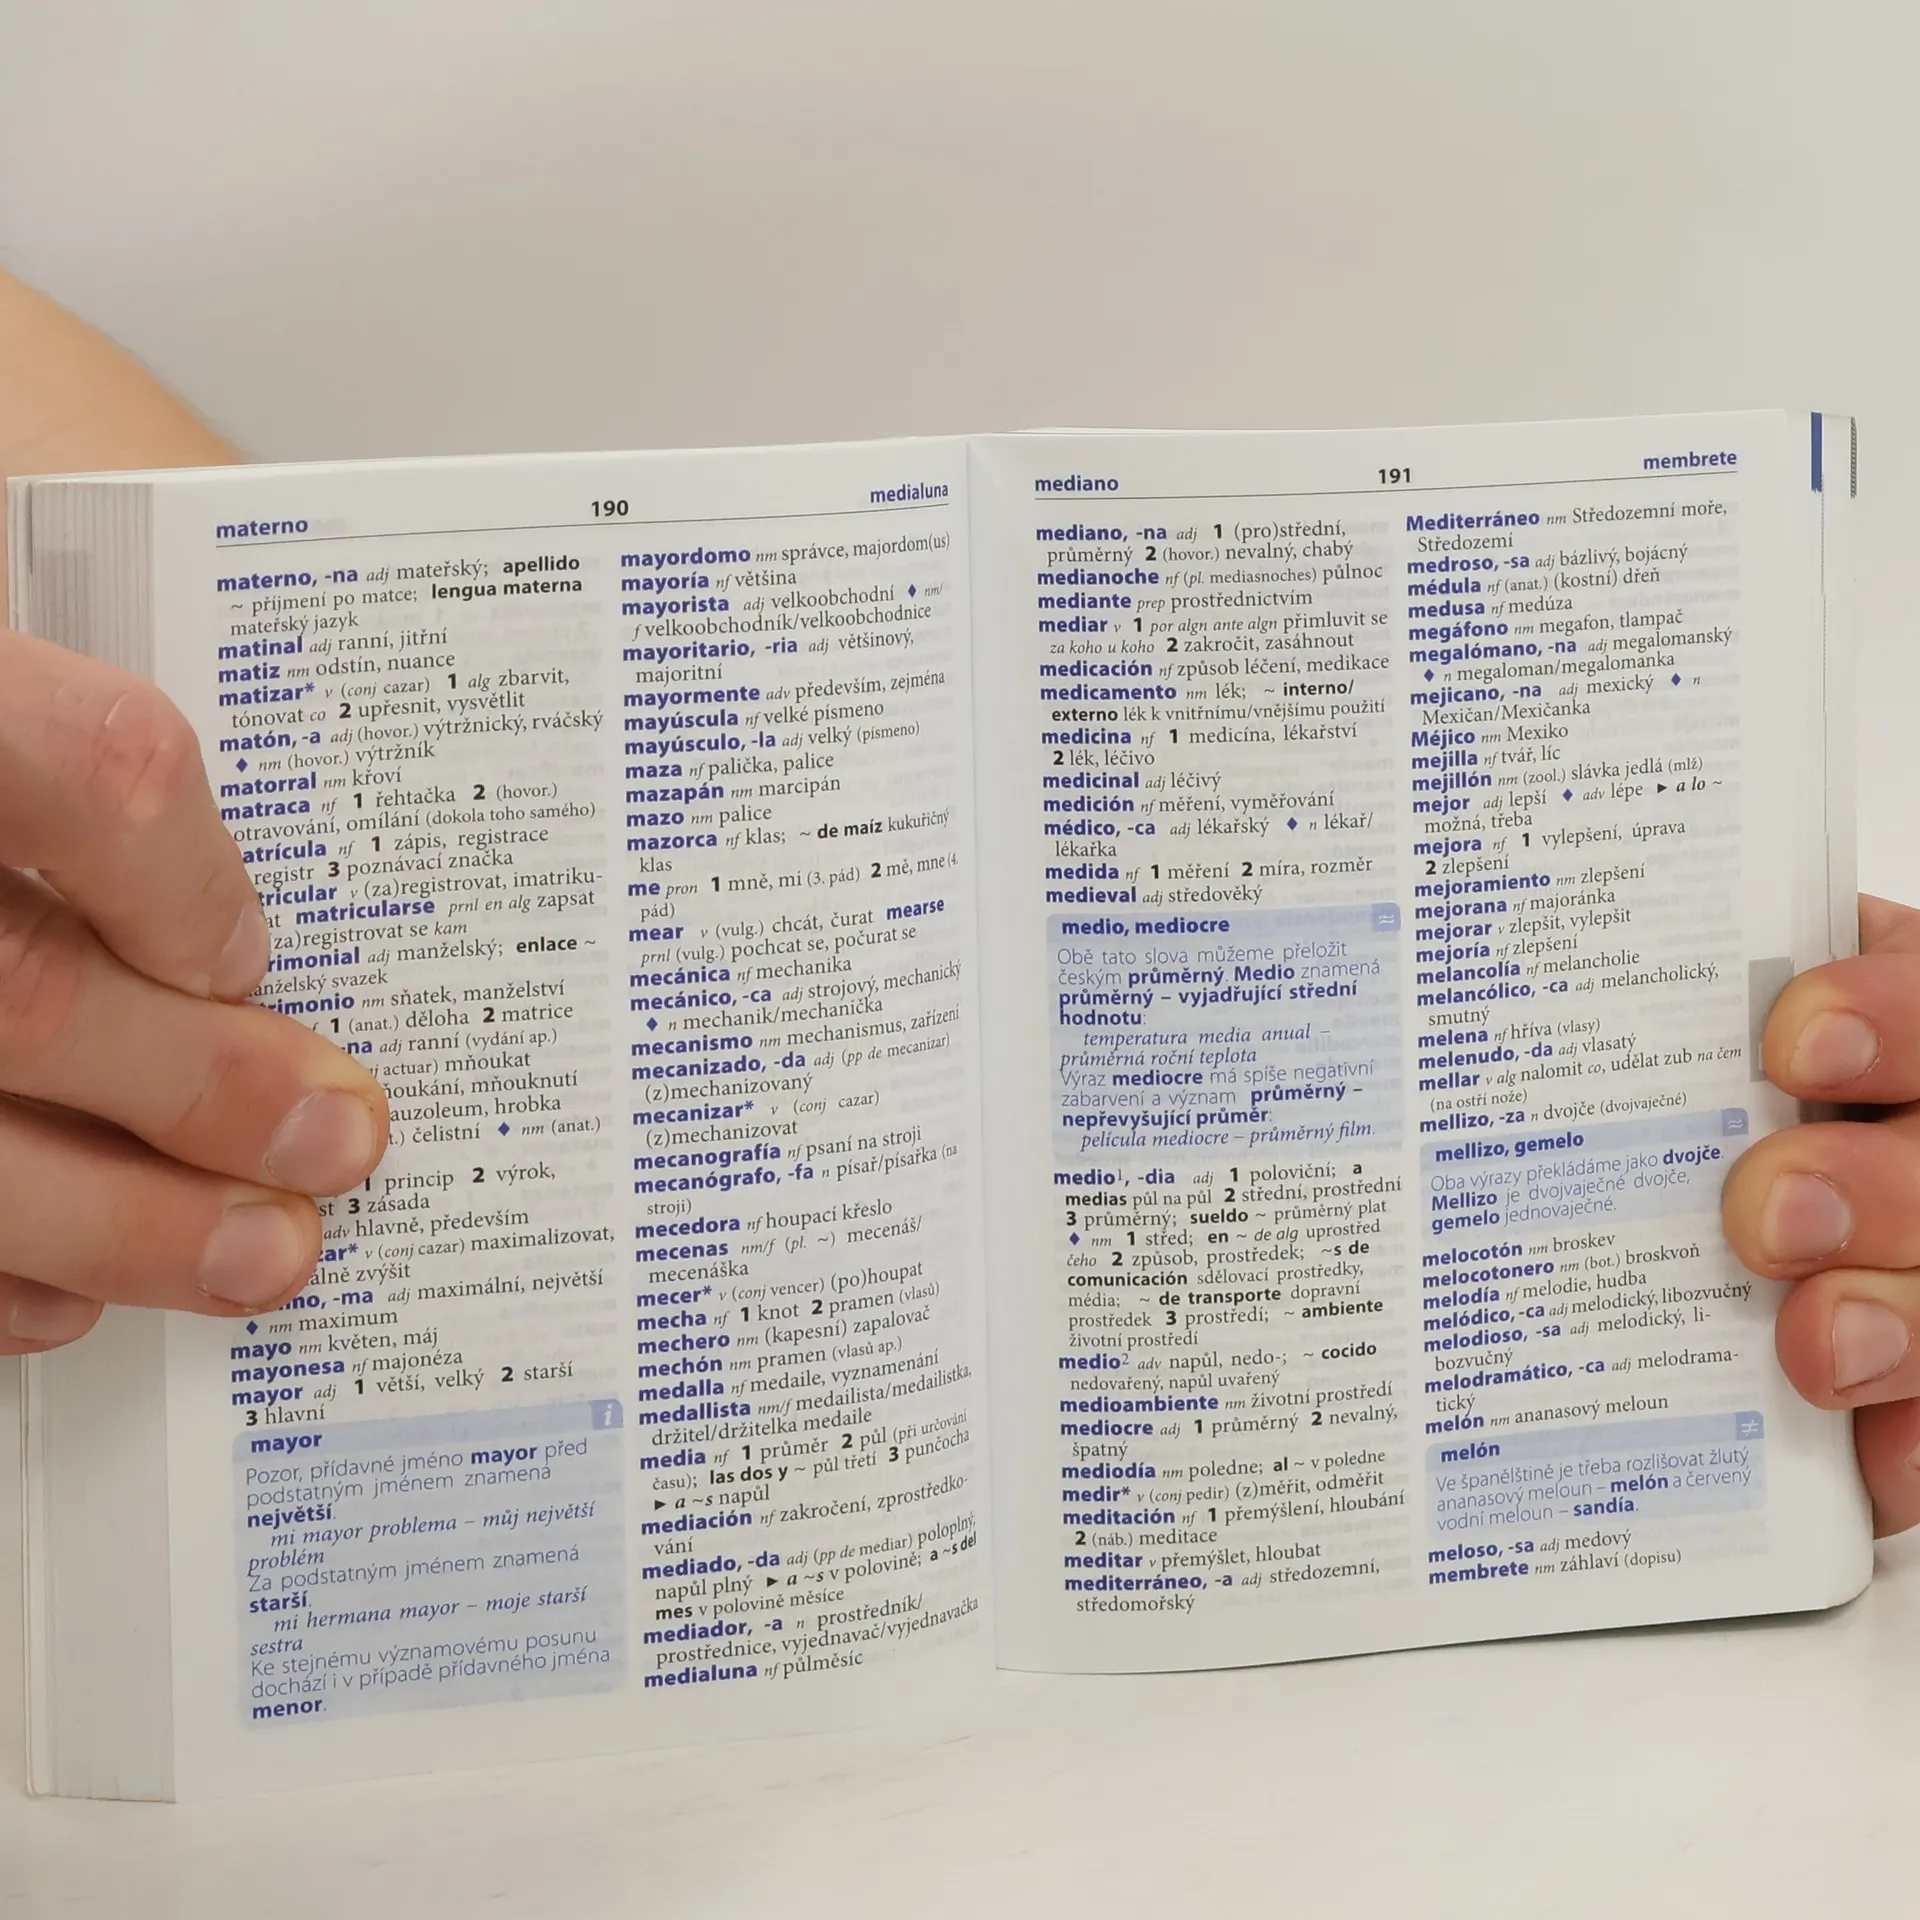 materno 190 medialuna
materno, -na adj mateřský; apellido
~ příjmení po matce; lengua materna
mateřský jazyk
matinal adj ranní, jitřní
matiz nm odstín, nuance
matizar* v (conj cazar) 1 alg zbarvit,
tónovat co 2 upřesnit, vysvětlit
matón, -a adj (hovor.) výtržnický, rváčský
♦ nm (hovor.) výtržník
matorral nm křoví
matraca nf 1 řehtačka 2 (hovor.)
otravování, omílání (dokola toho samého)
atrícula nf 1 zápis, registrace
registr 3 poznávací značka
tricular v (za)registrovat, imatriku-
at matricularse prnl en alg zapsat
(za)registrovat se kam
rimonial adj manželský; enlace ~
anželský svazek
rimonio nm sňatek, manželství
f 1 (anat.) děloha 2 matrice
-na adj ranní (vydání ap.)
j actuar) mňoukat
ňoukání, mňouknutí
auzoleum, hrobka
t.) čelistní ♦ nm (anat.)
1 princip 2 výrok,
st 3 zásada
adv hlavně, především
zar* v (conj cazar) maximalizovat,
álně zvýšit
mo, -ma adj maximální, největší
♦ nm maximum
mayo nm květen, máj
mayonesa nf majonéza
mayor adj 1 větší, velký 2 starší
3 hlavní
mayor i
Pozor, přídavné jméno mayor před
podstatným jménem znamená
největší.
mi mayor problema – můj největší
problém
Za podstatným jménem znamená
starší.
mi hermana mayor – moje starší
sestra
Ke stejnému významovému posunu
dochází i v případě přídavného jména
menor.
mayordomo nm správce, majordom(us)
mayoría nf většina
mayorista adj velkoobchodní ♦ nm/
f velkoobchodník/velkoobchodnice
mayoritario, -ria adj většinový,
majoritní
mayormente adv především, zejména
mayúscula nf velké písmeno
mayúsculo, -la adj velký (písmeno)
maza nf palička, palice
mazapán nm marcipán
mazo nm palice
mazorca nf klas; ~ de maíz kukuřičný
klas
me pron 1 mně, mi (3. pád) 2 mě, mne (4.
pád)
mear v (vulg.) chcát, čurat mearse
prnl (vulg.) pochcat se, počurat se
mecánica nf mechanika
mecánico, -ca adj strojový, mechanický
♦ n mechanik/mechanička
mecanismo nm mechanismus, zařízení
mecanizado, -da adj (pp de mecanizar)
(z)mechanizovaný
mecanizar* v (conj cazar)
(z)mechanizovat
mecanografía nf psaní na stroji
mecanógrafo, -fa n písař/písařka (na
stroji)
mecedora nf houpací křeslo
mecenas nm/f (pl. ~) mecenáš/
mecenáška
mecer* v (conj vencer) (po)houpat
mecha nf 1 knot 2 pramen (vlasů)
mechero nm (kapesní) zapalovač
mechón nm pramen (vlasů ap.)
medalla nf medaile, vyznamenání
medallista nm/f medailista/medailistka,
držitel/držitelka medaile
media nf 1 průměr 2 půl (při určování
času); las dos y ~ půl třetí 3 punčocha
► a ~s napůl
mediación nf zakročení, zprostředko-
vání
mediado, -da adj (pp de mediar) poloplný,
napůl plný ► a ~s v polovině; a ~s del
mes v polovině měsíce
mediador, -a n prostředník/
prostřednice, vyjednavač/vyjednavačka
medialuna nf půlměsíc
mediano 191 membrete
mediano, -na adj 1 (pro)střední,
průměrný 2 (hovor.) nevalný, chabý
medianoche nf (pl. mediasnoches) půlnoc
mediante prep prostřednictvím
mediar v 1 por algn ante algn přimluvit se
za koho u koho 2 zakročit, zasáhnout
medicación nf způsob léčení, medikace
medicamento nm lék; ~ interno/
externo lék k vnitřnímu/vnějšímu použití
medicina nf 1 medicína, lékařství
2 lék, léčivo
medicinal adj léčivý
medición nf měření, vyměřování
médico, -ca adj lékařský ♦ n lékař/
lékařka
medida nf 1 měření 2 míra, rozměr
medieval adj středověký
medio, mediocre ≈
Obě tato slova můžeme přeložit
českým průměrný. Medio znamená
průměrný – vyjadřující střední
hodnotu:
temperatura media anual –
průměrná roční teplota
Výraz mediocre má spíše negativní
zabarvení a význam průměrný –
nepřevyšující průměr:
película mediocre – průměrný film.
medio¹, -dia adj 1 poloviční; a
medias půl na půl 2 střední, prostřední
3 průměrný; sueldo ~ průměrný plat
♦ nm 1 střed; en ~ de alg uprostřed
čeho 2 způsob, prostředek; ~s de
comunicación sdělovací prostředky,
média; ~ de transporte dopravní
prostředek 3 prostředí; ~ ambiente
životní prostředí
medio² adv napůl, nedo-; ~ cocido
nedovařený, napůl uvařený
medioambiente nm životní prostředí
mediocre adj 1 průměrný 2 nevalný,
špatný
mediodía nm poledne; al ~ v poledne
medir* v (conj pedir) (z)měřit, odměřit
meditación nf 1 přemýšlení, hloubání
2 (náb.) meditace
meditar v přemýšlet, hloubat
mediterráneo, -a adj středozemní,
středomořský
Mediterráneo nm Středozemní moře,
Středozemí
medroso, -sa adj bázlivý, bojácný
médula nf (anat.) (kostní) dřeň
medusa nf medúza
megáfono nm megafon, tlampač
megalómano, -na adj megalomanský
♦ n megaloman/megalomanka
mejicano, -na adj mexický ♦ n
Mexičan/Mexičanka
Méjico nm Mexiko
mejilla nf tvář, líc
mejillón nm (zool.) slávka jedlá (mlž)
mejor adj lepší ♦ adv lépe ► a lo ~
možná, třeba
mejora nf 1 vylepšení, úprava
2 zlepšení
mejoramiento nm zlepšení
mejorana nf majoránka
mejorar v zlepšit, vylepšit
mejoría nf zlepšení
melancolía nf melancholie
melancólico, -ca adj melancholický,
smutný
melena nf hříva (vlasy)
melenudo, -da adj vlasatý
mellar v alg nalomit co, udělat zub na čem
(na ostří nože)
mellizo, -za n dvojče (dvojvaječné)
mellizo, gemelo ≈
Oba výrazy překládáme jako dvojče.
Mellizo je dvojvaječné dvojče,
gemelo jednovaječné.
melocotón nm broskev
melocotonero nm (bot.) broskvoň
melodía nf melodie, hudba
melódico, -ca adj melodický, libozvučný
melodioso, -sa adj melodický, li-
bozvučný
melodramático, -ca adj melodrama-
tický
melón nm ananasový meloun
melón ≠
Ve španělštině je třeba rozlišovat žlutý
ananasový meloun – melón a červený
vodní meloun – sandía.
meloso, -sa adj medový
membrete nm záhlaví (dopisu)